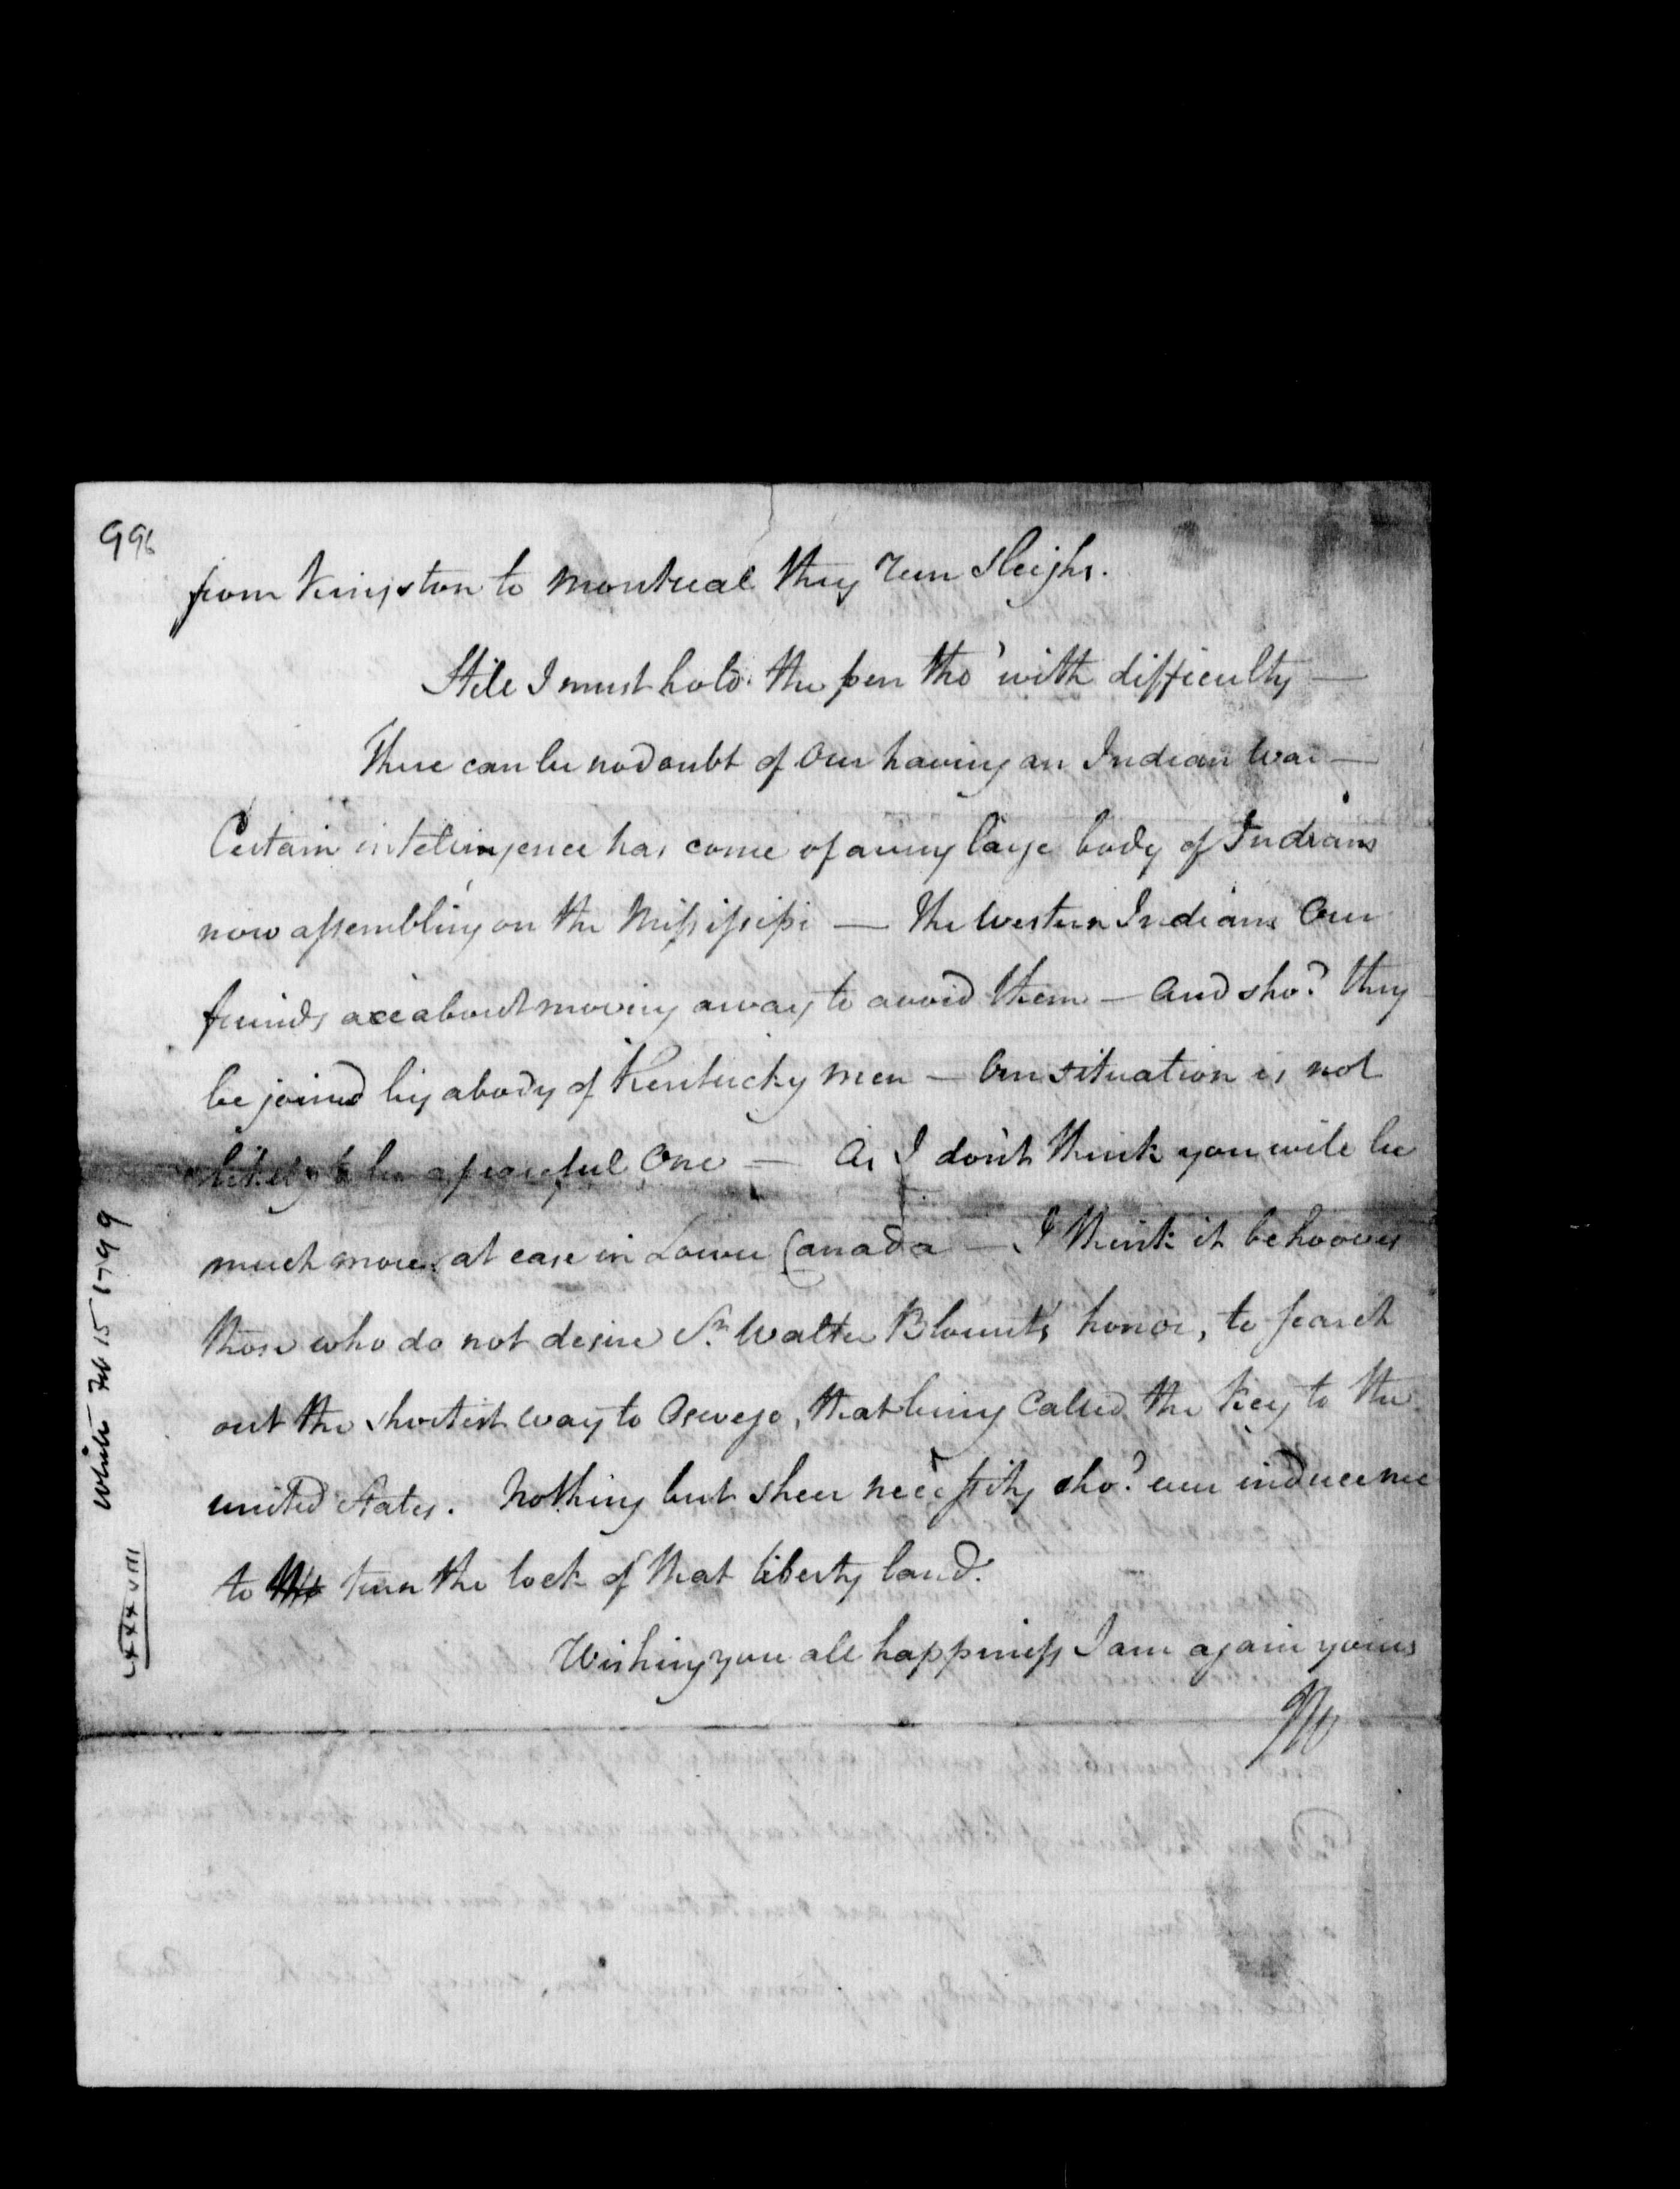 996
from Kingston to Montreal they run Sleighs.
Still I must hold the pen tho' with difficulty —
There can be no doubt of Our having an Indian War —
Certain intelligence has come of a very large body of Indians
now assembling on the Missisipi — the Western Indians Our
friends are about moving away to avoid them — And sho.d they
be joined by a body of Kentucky men — Our situation is not
likely to be a peaceful One — As I don't think you will be
much more at ease in Lower Canada — I think it behooves
those who do not desire Sr. Walter Blount's honor, to search
out the shortest way to Oswego, that being Called the Key to the
united States. Nothing but sheer necessity sho.d ever induce me
to turn the lock of that liberty land.
Wishing you all happiness I am again yours
JW
White Feb 15 1799